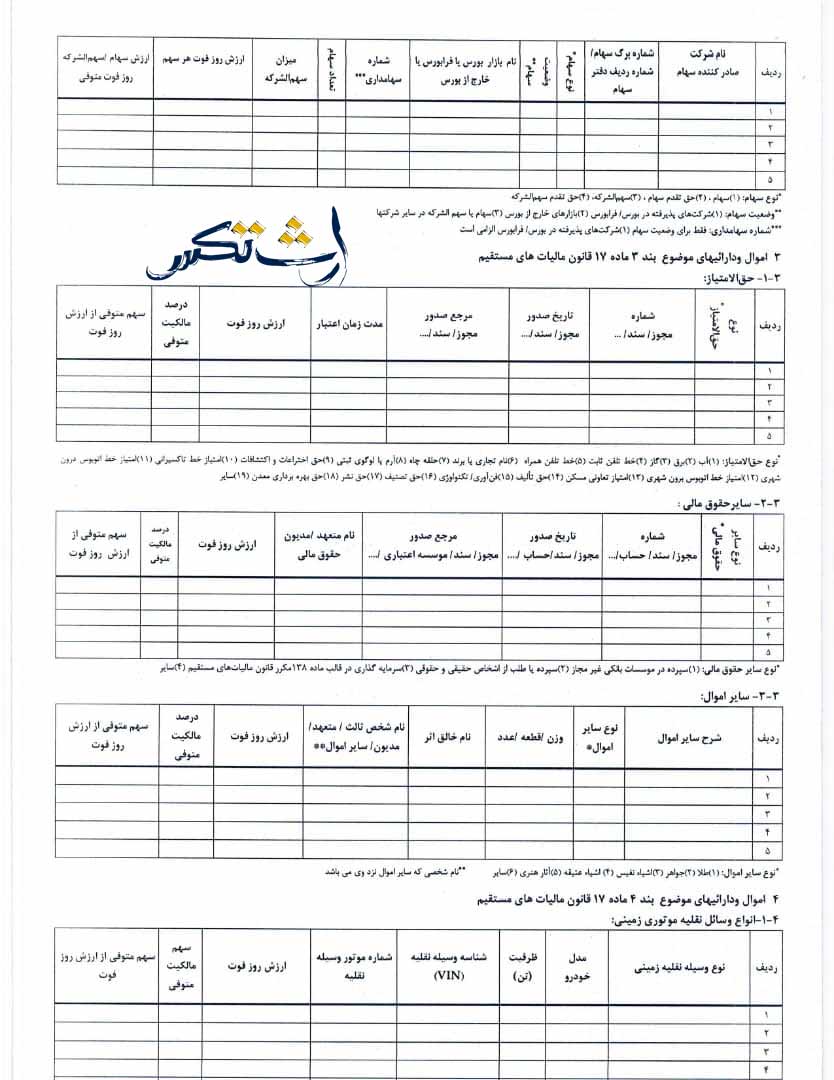 ردیف
نام شرکت صادر کننده سهام
شماره برگ سهام/ شماره ردیف دفتر سهام
نوع سهام*
وضعیت سهام**
نام بازار بورس یا فرابورس یا خارج از بورس
شماره سهامداری***
تعداد سهام
میزان سهم‌الشرکه
ارزش روز فوت هر سهم
ارزش سهام /سهم‌الشرکه روز فوت متوفی
۱
۲
۳
۴
۵
*نوع سهام: (۱)سهام ، (۲)حق تقدم سهام ، (۳)سهم‌الشرکه، (۴)حق تقدم سهم‌الشرکه
**وضعیت سهام: (۱)شرکت‌های پذیرفته در بورس/ فرابورس (۲)بازارهای خارج از بورس (۳)سهام یا سهم الشرکه در سایر شرکتها
***شماره سهامداری: فقط برای وضعیت سهام (۱)شرکت‌های پذیرفته در بورس/ فرابورس الزامی است
۳ اموال ودارائیهای موضوع بند ۳ ماده ۱۷ قانون مالیات های مستقیم
۳-۱- حق‌الامتیاز:
ردیف
نوع حق‌الامتیاز*
شماره مجوز/ سند/ ...
تاریخ صدور مجوز/ سند/....
مرجع صدور مجوز/ سند/....
مدت زمان اعتبار
ارزش روز فوت
درصد مالکیت متوفی
سهم متوفی از ارزش روز فوت
۱
۲
۳
۴
۵
*نوع حق‌الامتیاز: (۱)آب (۲)برق (۳)گاز (۴)خط تلفن ثابت (۵)خط تلفن همراه (۶)نام تجاری یا برند (۷)حلقه چاه (۸)آرم یا لوگوی ثبتی (۹)حق اختراعات و اکتشافات (۱۰)امتیاز خط تاکسیرانی (۱۱)امتیاز خط اتوبوس درون
شهری (۱۲)امتیاز خط اتوبوس برون شهری (۱۳)امتیاز تعاونی مسکن (۱۴)حق تألیف (۱۵)فن‌آوری/ تکنولوژی (۱۶)حق تصنیف (۱۷)حق نشر (۱۸)حق بهره برداری معدن (۱۹)سایر
۳-۲- سایرحقوق مالی :
ردیف
نوع سایر حقوق مالی*
شماره مجوز/ سند/ حساب/...
تاریخ صدور مجوز/ سند/حساب /...
مرجع صدور مجوز/ سند/ موسسه اعتباری /....
نام متعهد /مدیون حقوق مالی
ارزش روز فوت
درصد مالکیت متوفی
سهم متوفی از ارزش روز فوت
۱
۲
۳
۴
۵
*نوع سایر حقوق مالی: (۱)سپرده در موسسات بانکی غیر مجاز (۲)سپرده یا طلب از اشخاص حقیقی و حقوقی (۳)سرمایه گذاری در قالب ماده ۱۳۸مکرر قانون مالیات‌های مستقیم (۴)سایر
۳-۳- سایر اموال:
ردیف
شرح سایر اموال
نوع سایر اموال*
وزن /قطعه /عدد
نام خالق اثر
نام شخص ثالث / متعهد/ مدیون/ سایر اموال**
ارزش روز فوت
درصد مالکیت متوفی
سهم متوفی از ارزش روز فوت
۱
۲
۳
۴
۵
*نوع سایر اموال: (۱)طلا (۲)جواهر (۳)اشیاء نفیس (۴) اشیاء عتیقه (۵)آثار هنری (۶)سایر **نام شخصی که سایر اموال نزد وی می باشد
۴ اموال ودارائیهای موضوع بند ۴ ماده ۱۷ قانون مالیات های مستقیم
۴-۱-انواع وسائل نقلیه موتوری زمینی:
ردیف
نوع وسیله نقلیه زمینی
مدل خودرو
ظرفیت (تن)
شناسه وسیله نقلیه (VIN)
شماره موتور وسیله نقلیه
ارزش روز فوت
سهم مالکیت متوفی
سهم متوفی از ارزش روز فوت
۱
۲
۳
۴